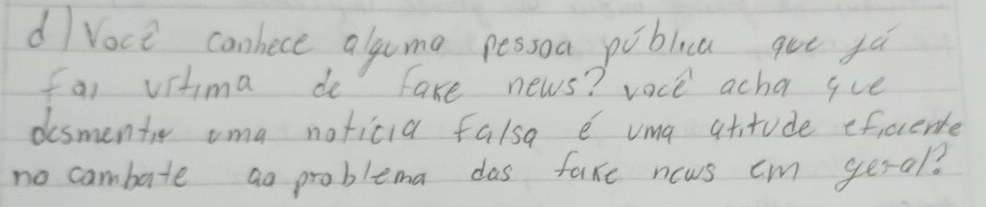 d) Você conhece alguma pessoa pública que já
foi vítima de fake news? você acha que
desmentir uma notícia falsa é uma atitude eficiente
no combate ao problema das fake news em geral?